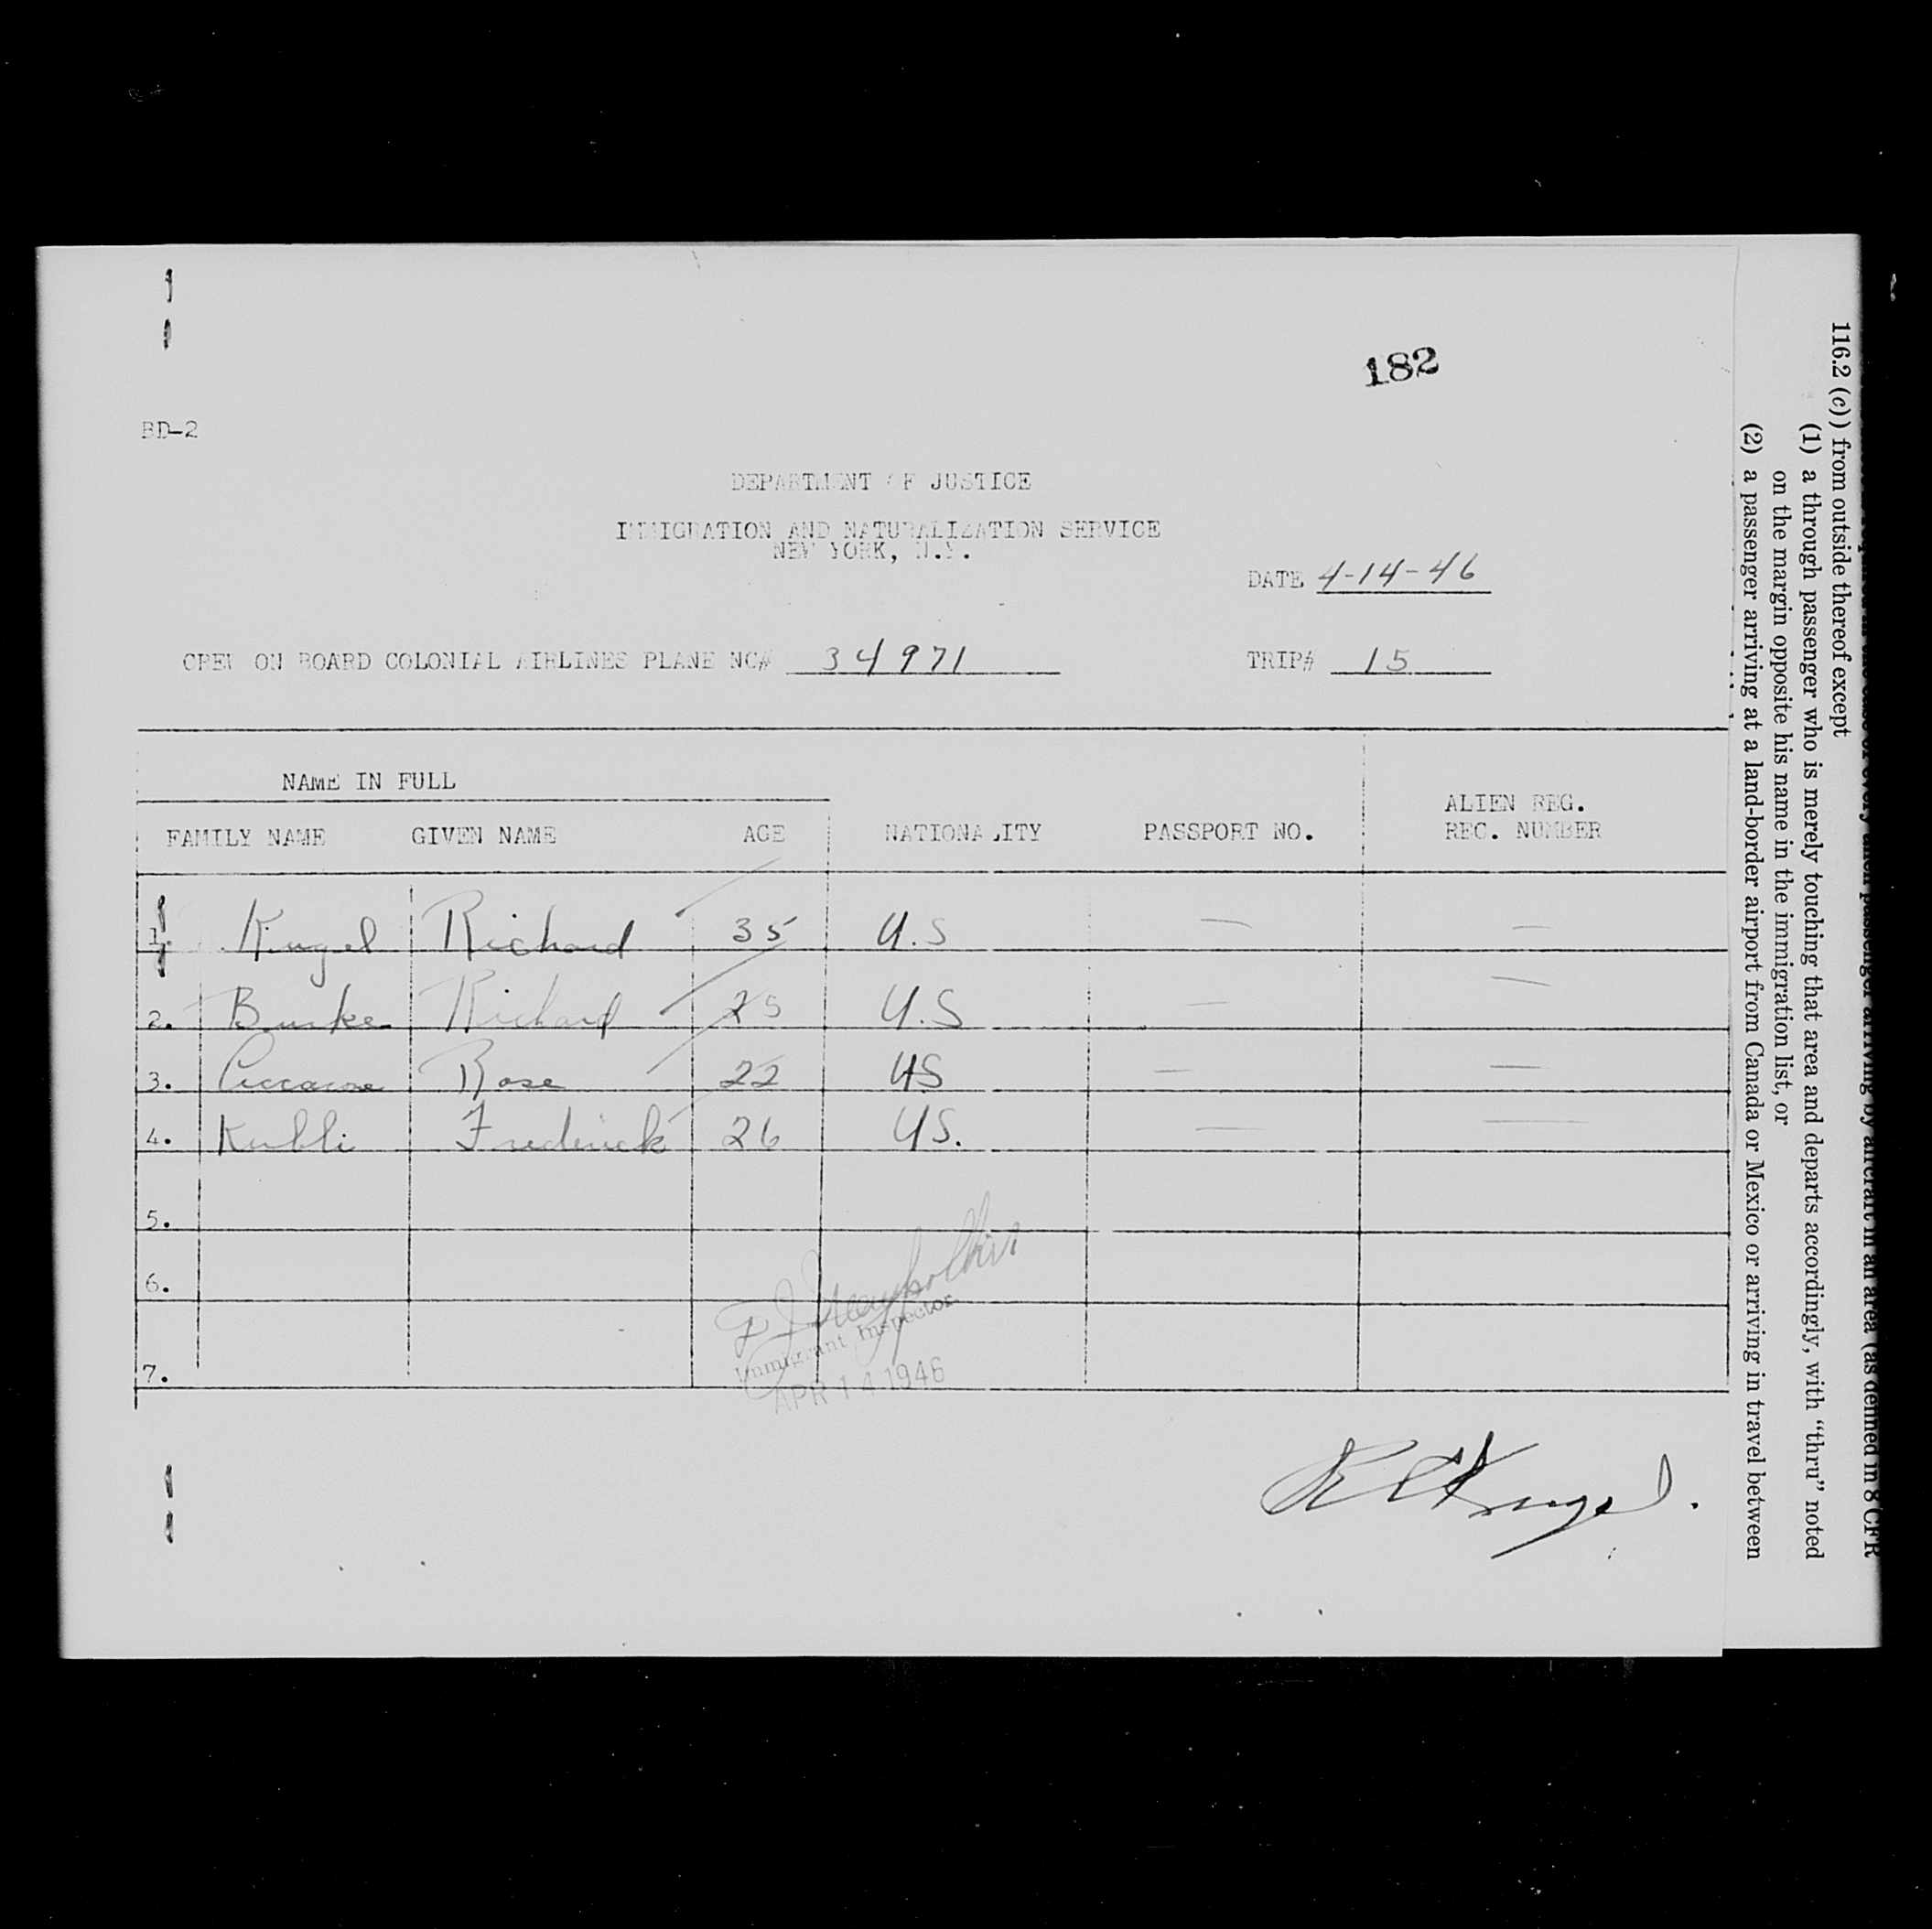 182
BD-2
DEPARTMENT OF JUSTICE
IMMIGRATION AND NATURALIZATION SERVICE
NEW YORK, N.Y.
DATE 4-14-46
CREW ON BOARD COLONIAL AIRLINES PLANE NC# 34971 TRIP# 15
NAME IN FULL
FAMILY NAME GIVEN NAME AGE NATIONALITY PASSPORT NO. ALIEN REG.
REC. NUMBER
1. Kugel Richard 35 U.S — —
2. Burke Richard 25 U.S — —
3. Rose 22 US — —
4. Kubli Frederick 26 US. — —
5.
6.
7.
Immigrant Inspector
APR 14 1946
116.2 (c)) from outside thereof except
(1) a through passenger who is merely touching that area and departs accordingly, with "thru" noted
on the margin opposite his name in the immigration list, or
(2) a passenger arriving at a land-border airport from Canada or Mexico or arriving in travel between